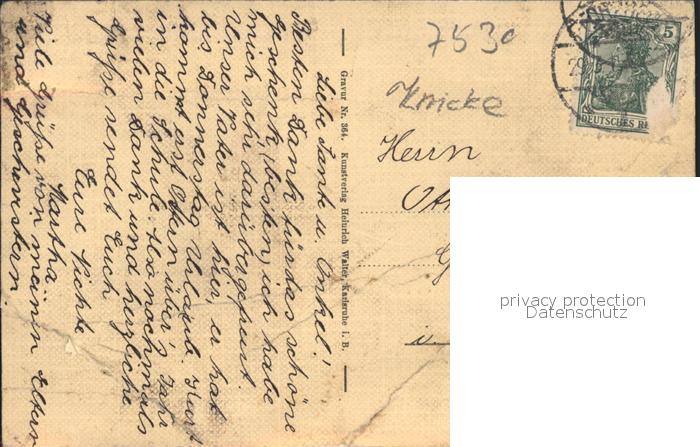 Liebe Tante u. Onkel!
Besten Dank für das schöne
Geschenk, besten, ich habe
mich sehr darüber gefreut.
Unser Vater ist hier, er hat
bis Donnerstag Urlaub. Kurt
kommt erst Ostern über's Jahr
in die Schule. Also nochmals
vielen Dank und herzliche
Grüße sendet Euch
Eure Nichte
Martha
Viele Grüße von meinen Eltern
und Geschwistern.
Gravur Nr. 364. Kunstverlag Heinrich Walter, Karlsruhe i. B.
7530
Knicke
Herrn
5
DEUTSCHES
privacy protection
Datenschutz